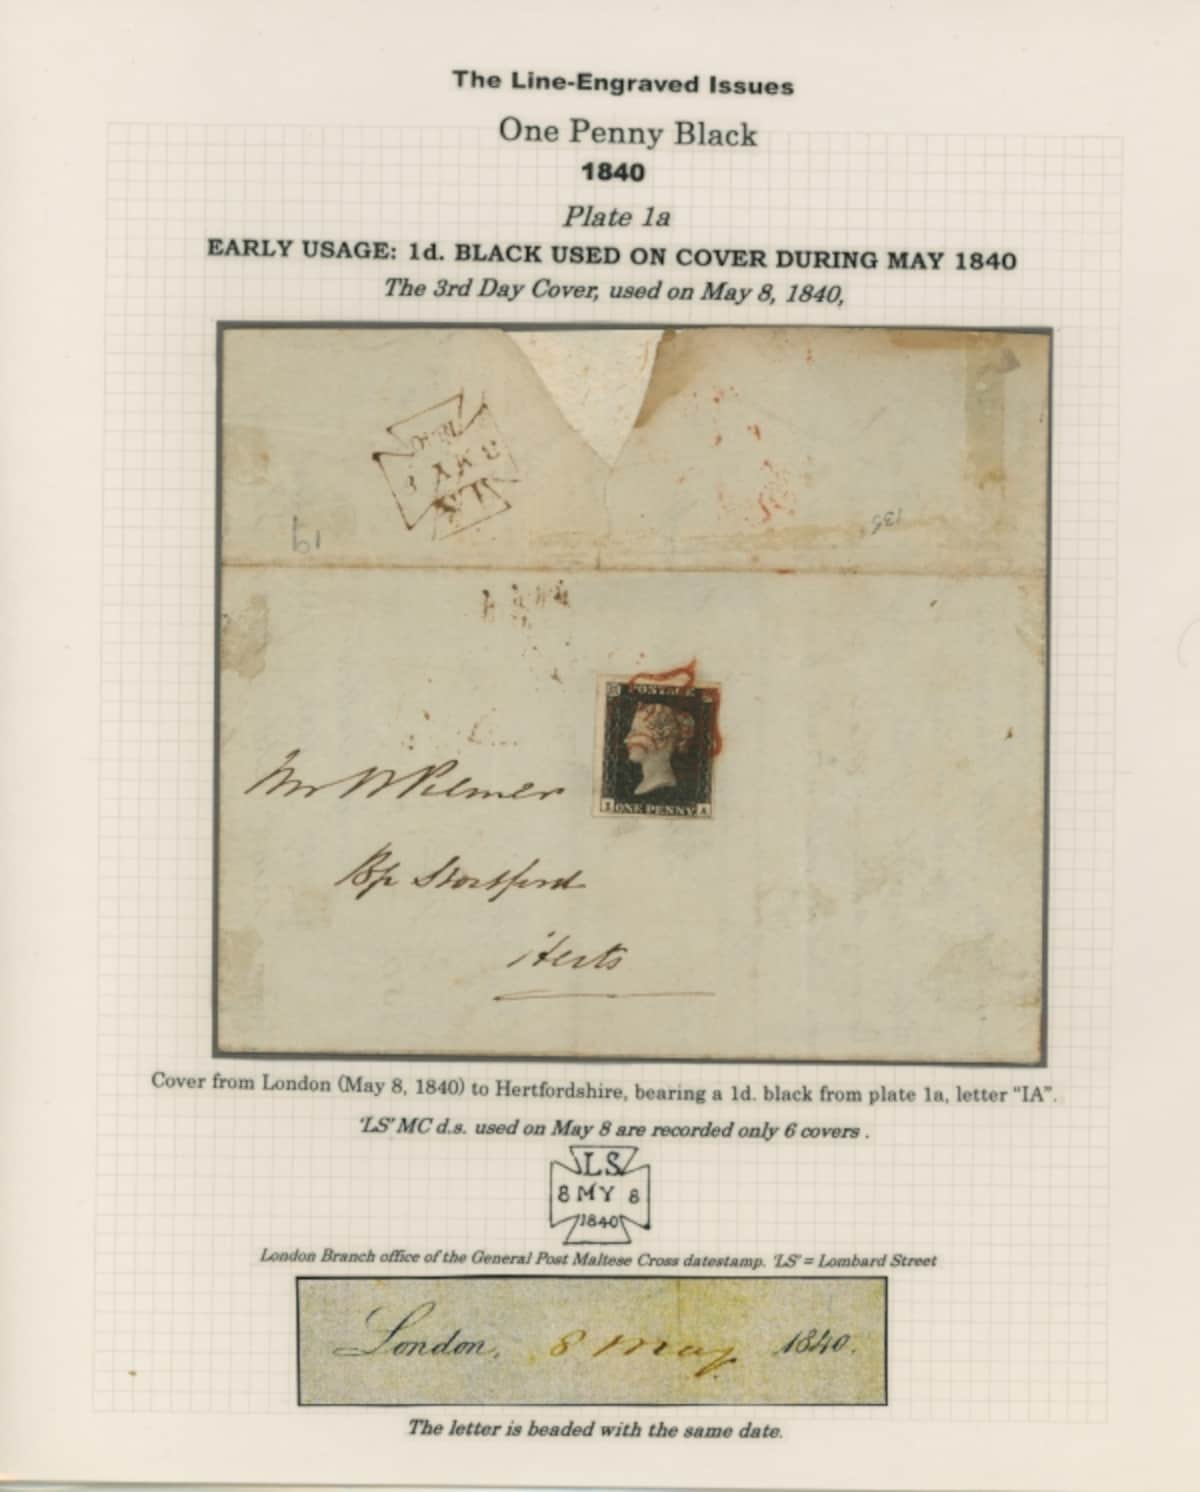 The Line-Engraved Issues
One Penny Black
1840
Plate 1a
EARLY USAGE: 1d. BLACK USED ON COVER DURING MAY 1840
The 3rd Day Cover, used on May 8, 1840,
61
135
POSTAGE
I ONE PENNY A
Mr W Pilmer
Bp Stortford
Herts
Cover from London (May 8, 1840) to Hertfordshire, bearing a 1d. black from plate 1a, letter “IA”.
‘LS’ MC d.s. used on May 8 are recorded only 6 covers .
LS
8 MY 8
1840
London Branch office of the General Post Maltese Cross datestamp. ‘LS’ = Lombard Street
London, 8 May 1840.
The letter is beaded with the same date.